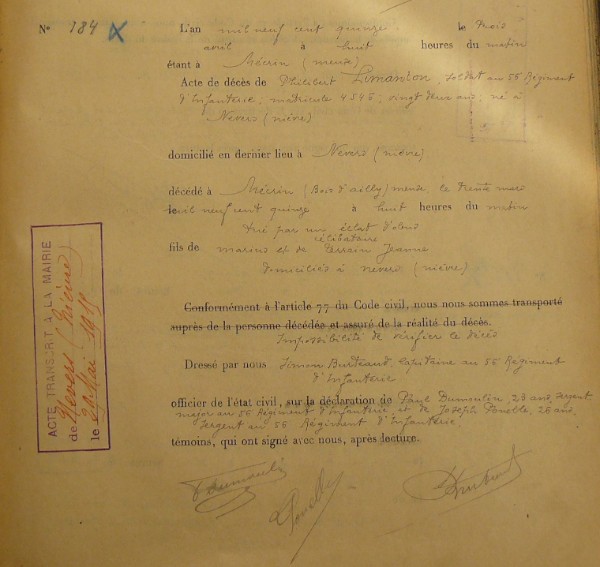 N° 184 X
L'an mil neuf cent quinze le trois
avril à huit heures du matin
étant à Mécrin (meuse)
Acte de décès de Philibert Limanton, soldat au 56 Régiment
d'Infanterie; matricule 4545; vingt deux ans; né à
Nevers (nièvre)
domicilié en dernier lieu à Nevers (nièvre)
décédé à Mécrin (Bois d'ailly) meuse le trente mars
le mil neuf cent quinze à huit heures du matin
tué par un éclat d'obus
célibataire
fils de marius et de Terrain Jeanne
domiciliés à nevers (nièvre)
Conformément à l'article 77 du Code civil, nous nous sommes transporté
auprès de la personne décédée et assuré de la réalité du décès.
Impossibilité de vérifier le décès
Dressé par nous Simon Burteaud, Capitaine au 56 Régiment
d'Infanterie
officier de l'état civil, sur la déclaration de Paul Dumoulin, 23 ans, sergent
major au 56 Régiment d'Infanterie et de Joseph 26 ans,
sergent au 56 Régiment d'Infanterie
témoins, qui ont signé avec nous, après lecture.
Dumoulin
ACTE TRANSCRIT A LA MAIRIE
de Nevers (Nièvre)
le Mai 1915